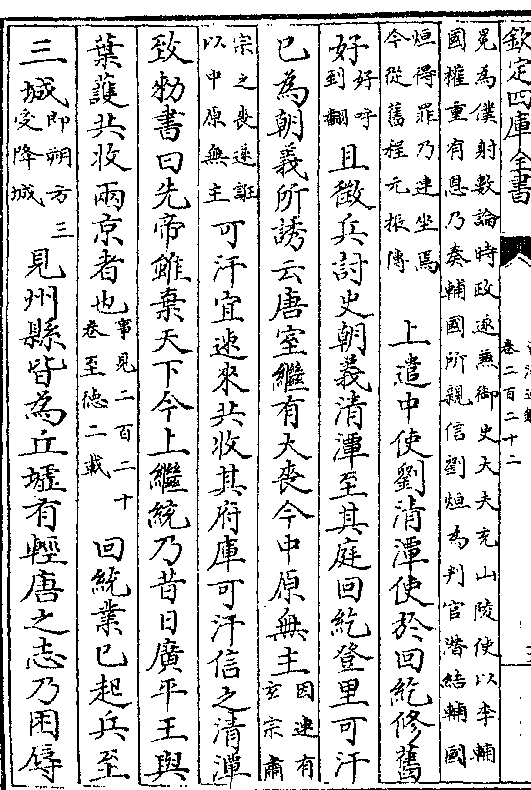 欽定四庫全書
卷二百二十二
冕為僕射數論時政遂兼御史大夫充山陵使以李輔
國權重有恩乃奏輔國所親信劉烜為判官潛結輔國
烜得罪乃連坐焉
今從舊程元振傳
上遣中使劉清潭使於回紇修舊
好
好呼
到翻
且徵兵討史朝義清潭至其庭回紇登里可汗
已為朝義所誘云唐室繼有大喪今中原無主
因連有
玄宗肅
宗之喪遂誑
以中原無主
可汗宜速來共收其府庫可汗信之清潭
致勑書曰先帝雖棄天下今上繼統乃昔日廣平王與
葉護共收兩京者也
事見二百二十
卷至德二載
回紇業已起兵至
三城
即朔方三
受降城
見州縣皆為丘墟有輕唐之志乃困辱